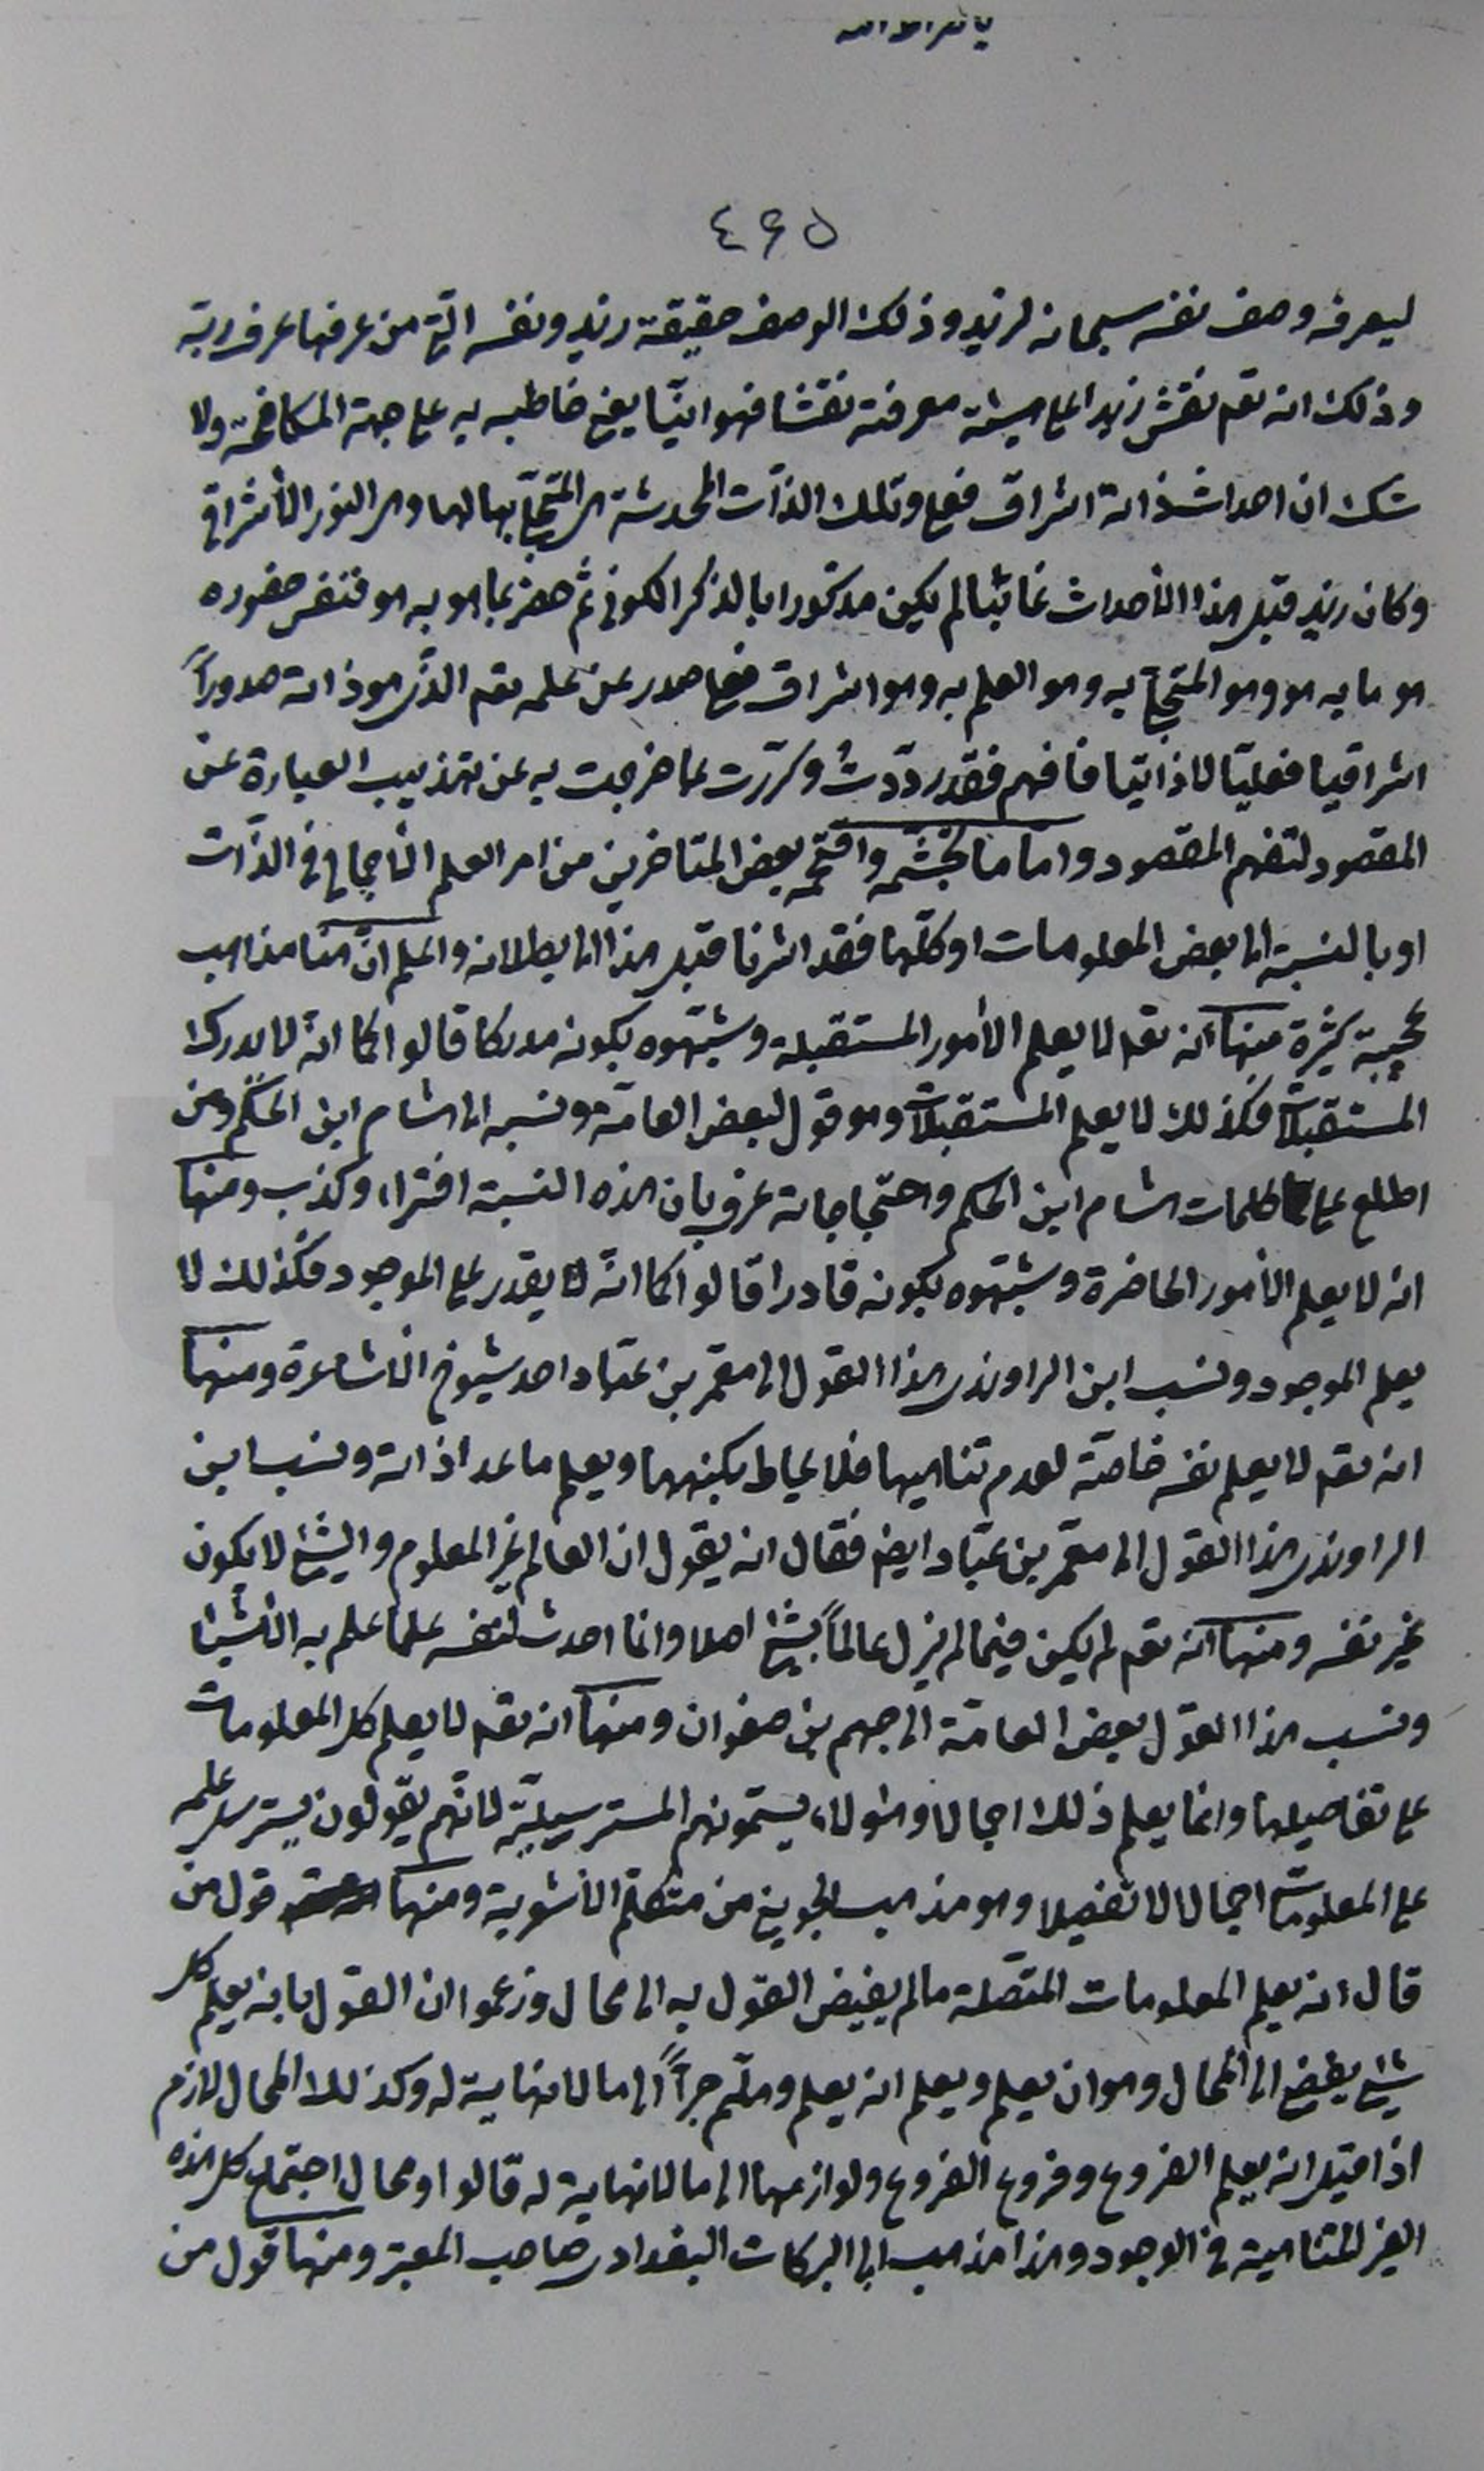 ٤۶۵
ليعرفه وصف نفسه سبحانه لزيد وذلك الوصف حقيقة زيد ونفسه الّتى من عرفها عرف ربّه
وذلك انه تعم نقش زيدا على هيئة معرفته نقشا فهوانيّا يعنى خاطبه به على جهة المكافحة ولا
شك ان احداث ذاته اشراق فعلى وتلك الذّات المحدثة هى المتجلّى بها لها وهى النور الأشراقى
وكان زيد قبل هذا الأحداث غائبًا لم يكن مذكورا بالذكر الكونى ثم حضر بما هو به هو فنفس حضوره
هو ما به هو وهو المتجلّى به وهو العلم به وهو اشراق فعلى صدر عن علمه تعم الذّى هو ذاته صدوراً
اشراقيا فعليّا لا ذاتيّا فافهم فقد ردّدتُ وكرّرت بما خرجت به عن تهذيب العبارة عن
المقصود لتفهم المقصود واما ما تجشّمه واقتحمه بعض المتاخرين من امر العلم الأجمالى فى الذّات
او بالنسبة الى بعض المعلومات او كلّها فقد اشرنا قبل هذا الى بطلانه واعلم انّ هنا مذاهب
عجيبة كثيرة منها انه تعم لا يعلم الأمور المستقبلة وشبّهوه بكونه مدركا قالوا كما انّه لا يدرك
المستقبلات فكذلك لا يعلم المستقبلات وهو قول لبعض العامّة ونسبه الى هشام ابن الحكم ومن
اطلع على كلمات هشام ابن الحكم واحتجاجاته عرف بان هذه النسبة افتراء وكذب ومنها
انه لا يعلم الأمور الحاضرة وشبّهوه بكونه قادرا قالوا كما انّه لا يقدر على الموجود فكذلك لا
يعلم الموجود ونسب ابن الراوندى هذا القول الى معمّر بن عبّاد احد شيوخ الأشاعرة ومنها
انه تعم لا يعلم نفسه خاصّة لعدم تناهيها فلا يحاط بكنهها ويعلم ما عدا ذاته ونسب ابن
الراوندى هذا القول الى معمّر بن عبّاد ايضا فقال انه يقول ان العالم غير المعلوم والشئ لا يكون
غير نفسه ومنها انّه تعم لم يكن فيما لم يزل عالماً بشئ اصلا وانما احدث لنفسه علما علم به الأشياء
ونسب هذا القول بعض العامّة الى جهم بن صفوان ومنها انه تعم لا يعلم كل المعلومات
على تفاصيلها وانما يعلم ذلك اجمالا وهؤلاء يسمّونهم المسترسيليّة لانّهم يقولون يسترسل علمه
على المعلومات اجمالا لا تفصيلا وهو مذهب الجوينى من متكلّمى الأشعرية ومنها قول من
قال انه يعلم المعلومات المتّصلة ما لم يفيض القول به الى محال وزعموا ان القول بانه يعلم كل
شئ يفضى الى المحال وهو ان يعلم ويعلم انه يعلم وهلّم جرّاً الى ما لا نهاية له وكذلك المحال لازم
اذا قيل انه يعلم الفروع وفروع الفروع ولوازمها الى ما لا نهاية له قالوا ومحال اجتماع كل هذه
الغير المتناهية فى الوجود وهذا مذهب ابى البركات البغدادى صاحب المعتبر ومنها قول من